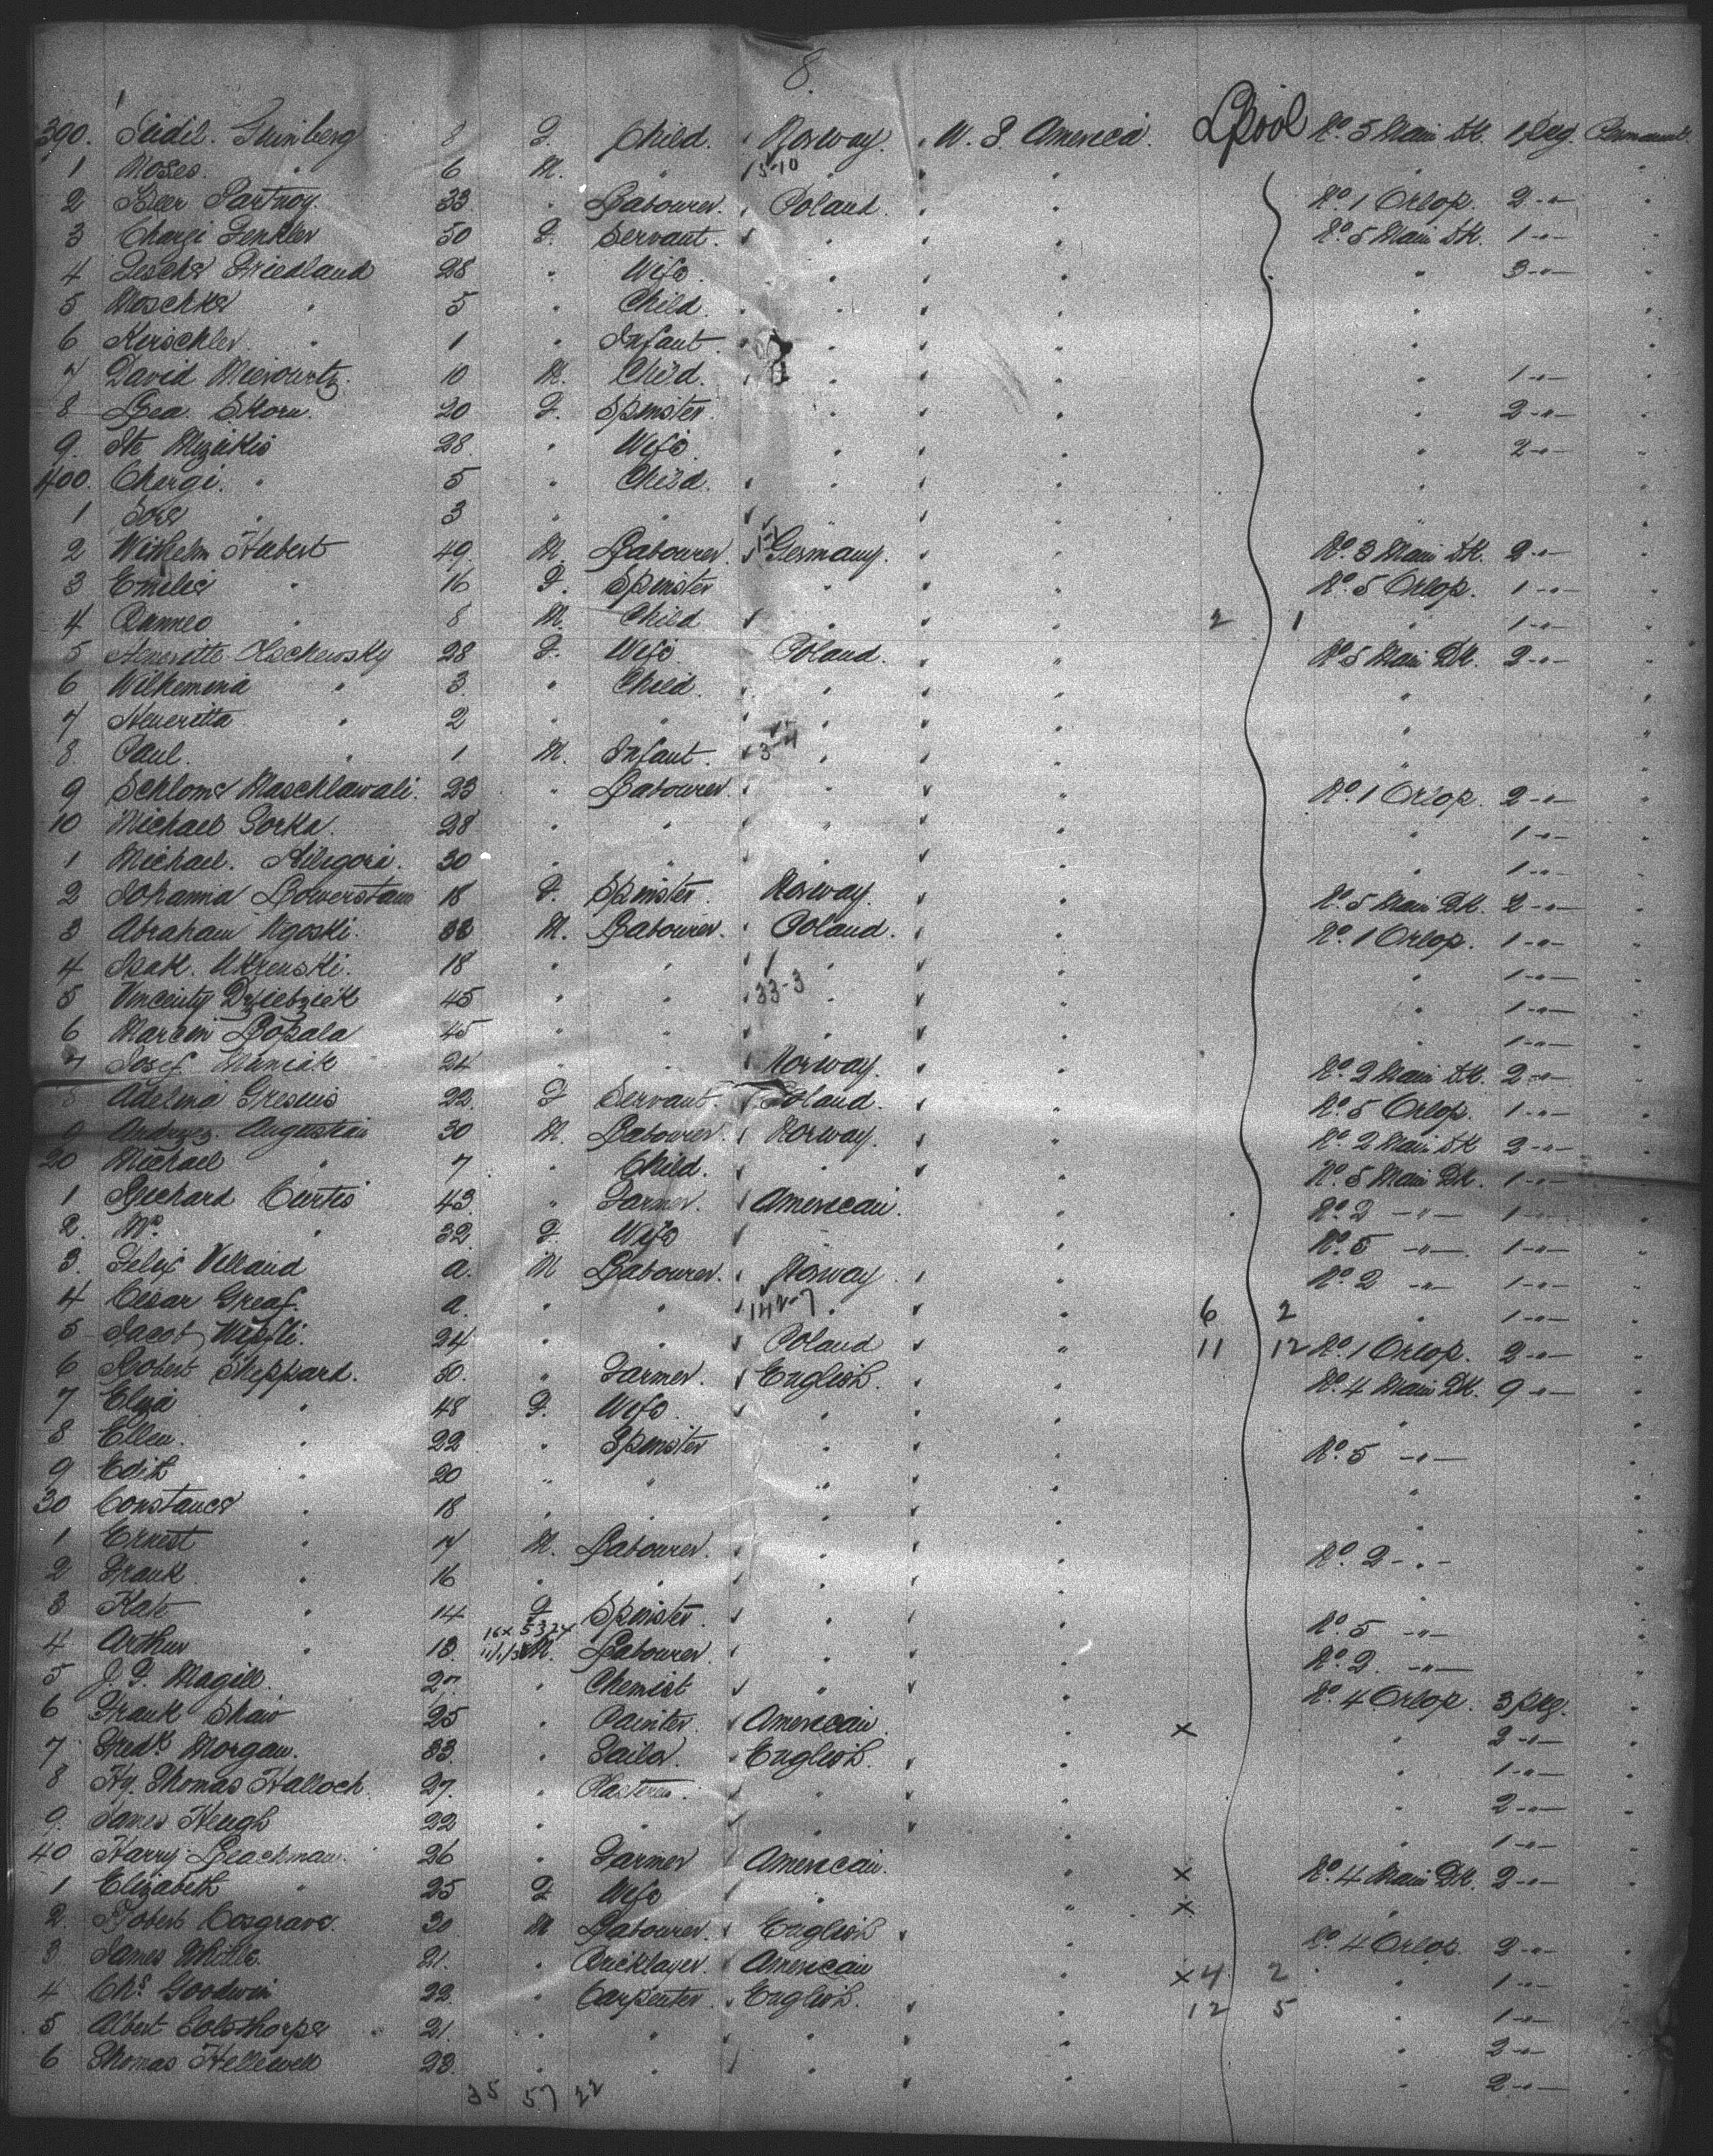 8.
390. Seidel. Grinberg 8 F. Child. Norway. U. S. America. L'pool No. 5 Main Dk. 1 Pkg. Permanent.
1 Moses. " 6 M. " 5-10 " "
2 Beer Partnoy 33 " Labourer. Poland. " No. 1 Orlop. 2 -"-
3 Chargi Lenkler 50 F. Servant. " " No. 5 Main Dk. 1 -"-
4 Friedland 28 " Wife. " " " 3 -"-
5 Moschke " 5 " Child. " " "
6 Kerschler. " 1 " Infant. " " "
7 David 10 M. Child. " " " 1 -"-
8 Lea Skoru. 20 F. Spinster. " " " 2 -"-
9. Ite 28 " Wife. " " " 2 -"-
400. Chargi. " 5 " Child. " " "
1 Sore " 3 " " " " "
2 Wilhelm Habert 49 M. Labourer. Germany. " No. 3 Main Dk. 2 -"-
3 Emelie " 16 F. Spinster " " No. 5 Orlop. 1 -"-
4 " 8 M. Child " " 2 1 " 1 -"-
5 28 F. Wife Poland. " No 5 Main Dk. 2 -"-
6 Wilhemena " 3 " Child. " " "
7 Heneritta " 2 " " " " "
8 Paul. " 1 M. Infant. " " "
9 Schlome Maschlawali. 23 " Labourer. " " No. 1 Orlop. 2 -"-
10 Michael Sorka. 28 " " " " " 1 -"-
1 Michael. 30 " " " " " 1 -"-
2 Johanna 18 F. Spinster. Norway. " No. 5 Main Dk. 2 -"-
3 Abraham 38 M. Labourer. Poland. " No. 1 Orlop. 1 -"-
4 Isak. Ukrenski. 18 " " " " " 1 -"-
5 Vincenty 45 " " 33-3 " " 1 -"-
6 Marcin Lopala 45 " " " " " 1 -"-
7 Josef Maniak 24 " " Norway. " No. 2 Main Dk. 2 -"-
8 Adelina 22 F Servant. Poland. " No. 5 Orlop. 1 -"-
9 Andrzez. Augustian 30 M. Labourer. Norway. " No. 2 Main Dk 2 -"-
20 Michael " 7 " Child. " " No. 5 Main Dk. 1 -"-
1 Richard Curtis 43. " Farmer. American. " No. 2 -"- 1 -"-
2. Mrs. " 32. F. Wife " " No. 5 -"- 1 -"-
3. Felix Vellaud a. M Labourer. Norway. " No. 2 -"- 1 -"-
4 Cesar Greaf. a. " " 142-7 " 6 2 " 1 -"-
5 Jacob Wipfli. 24 " " Poland " 11 12 No. 1 Orlop. 2 -"-
6 Robert Sheppard. 50. " Farmer. English. " No. 4 Main Dk. 9 -"-
7 Eliza " 48 F. Wife. " " "
8 Ellen. " 22 " Spinster " " No. 5 -"-
9 Edith " 20 " " " " "
30 Constance " 18 " " " " "
1 Ernest " 17 M. Labourer. " " No. 2 -"-
2 Frank " 16 " " " " "
3 Kate " 14 F Spinster. " " No. 5 -"-
4 Arthur " 13. M. Labourer. " " No. 2. -"-
5 J. F. Magill. 27. " Chemist " " No. 4 Orlop. 3 Pkg.
6 Frank Shaw 25 " Painter. American. " x " 2 -"-
7 Fredk Morgan. 33. " Tailor. English. " " 1 -"-
8 Hy. Thomas Halloch. 27. " Plasterer. " " " 2 -"-
9. James Heugh 22 " " " " " 1 -"-
40 Harry Leachman. 26 " Farmer American. " x No. 4 Main Dk. 2 -"-
1 Elizabeth " 25 F Wife " " x "
2. Robert Cosgrave. 30 M Labourer. English " No. 4 Orlop. 2 -"-
3 James White. 21. " Bricklayer. American " x 4 2 " 1 -"-
4 Chs. Goodwin 22. " Carpenter. English. " 12 5 " 1 -"-
5 Albert 21. " " " " " 2 -"-
6 Thomas Hellewell 23. " " " " " 2 -"-
35 57 22